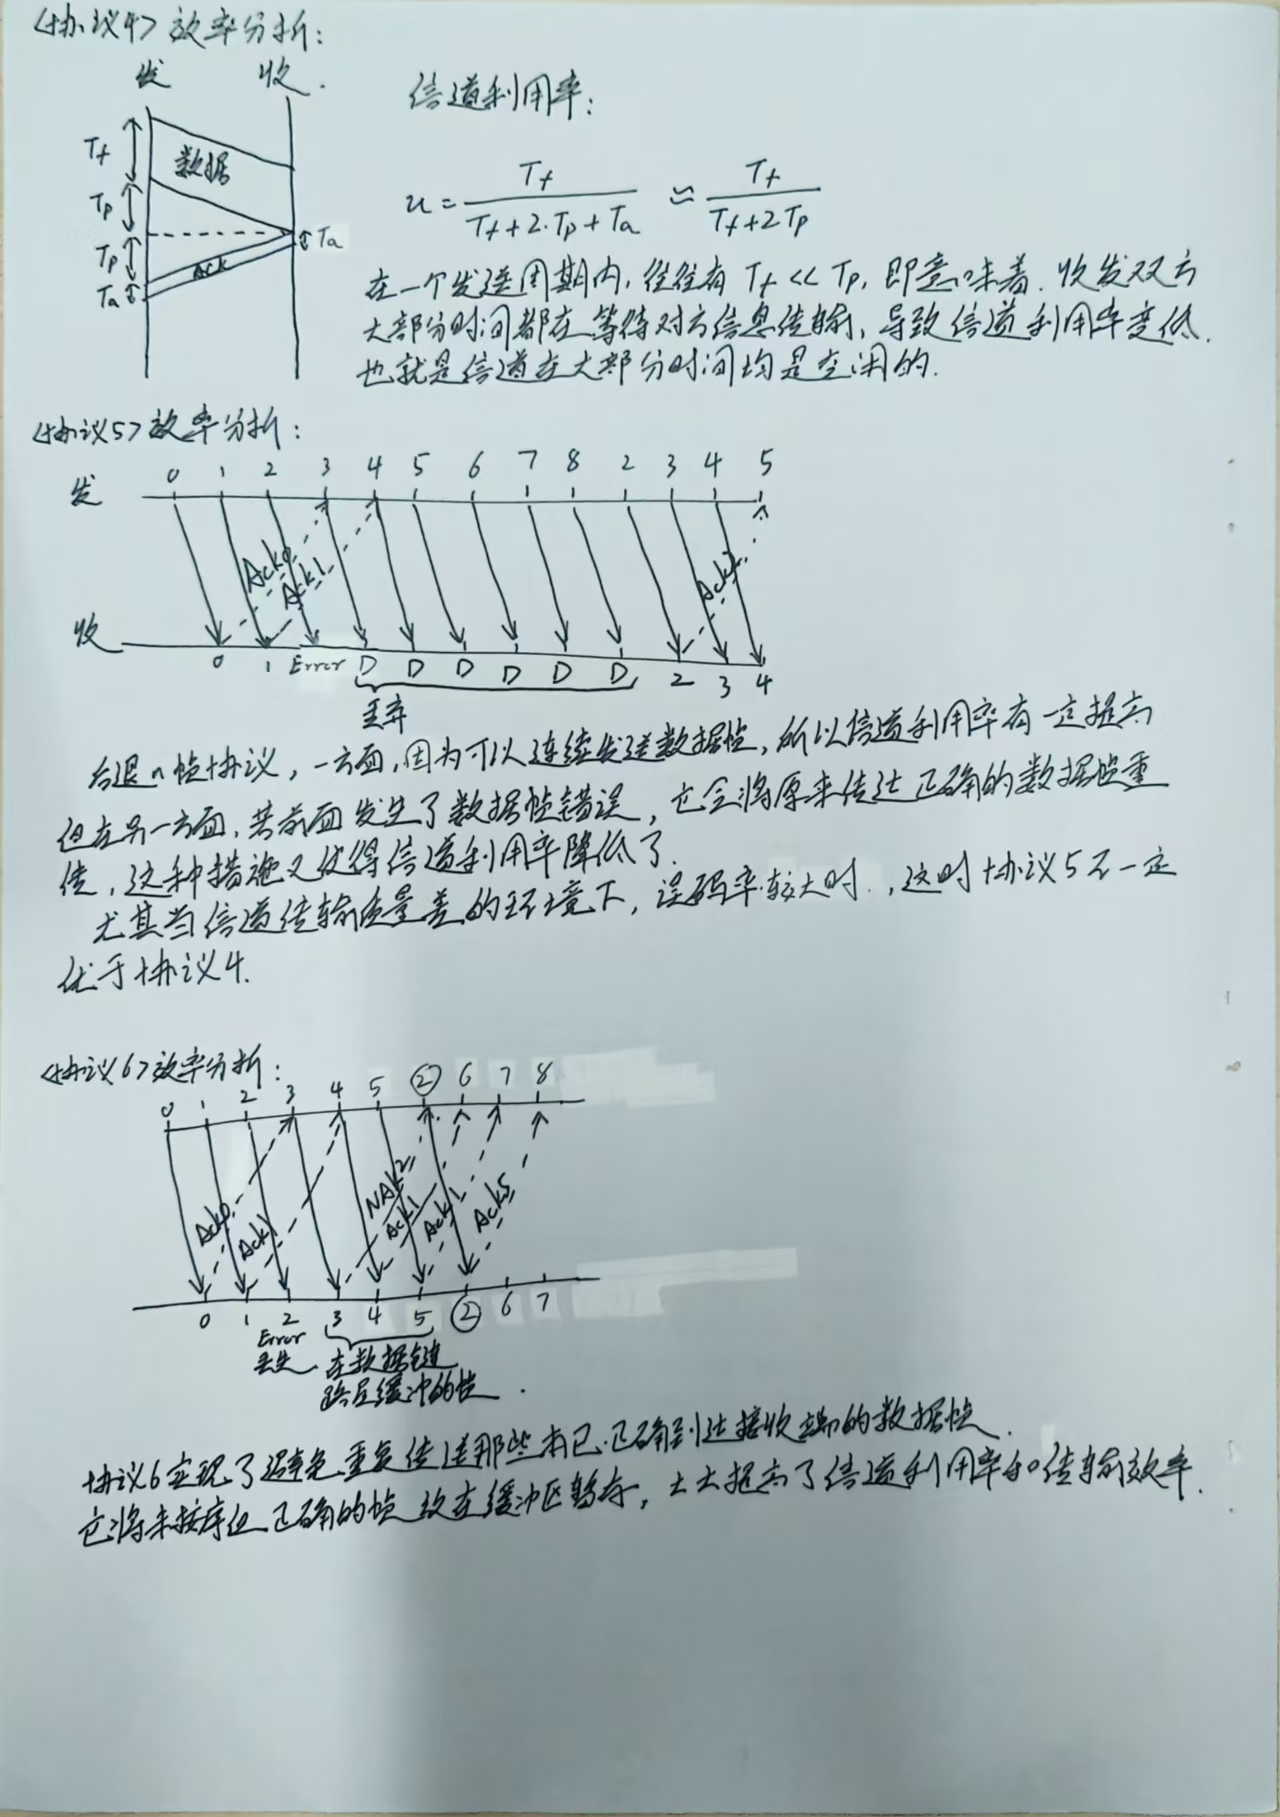 <协议4> 效率分析:
发 收.
信道利用率:
Tf
数据
Tp
Tp
Ta
Ack
Ta
u = Tf / (Tf+2·Tp+Ta) ≈ Tf / (Tf+2Tp)
在一个发送周期内, 往往有 Tf << Tp, 即意味着. 收发双方
大部分时间都在等待对方信息传输, 导致信道利用率变低.
也就是信道在大部分时间均是空闲的.
<协议5> 效率分析:
发 0 1 2 3 4 5 6 7 8 2 3 4 5
Ack0 Ack1 Ack2
收 0 1 Error D D D D D D 2 3 4
丢弃
后退n帧协议, 一方面, 因为可以连续发送数据帧, 所以信道利用率有一定提高
但在另一方面, 若前面发生了数据帧错误, 它会将原来传达正确的数据帧重
传, 这种措施又使得信道利用率降低了.
尤其当信道传输质量差的环境下, 误码率较大时., 这时协议5不一定
优于协议4.
<协议6> 效率分析:
0 1 2 3 4 5 ② 6 7 8
Ack0 Ack1 NAK2 Ack1 Ack1 Ack5
0 1 2 3 4 5 ② 6 7
Error
丢失. 在数据链
路层缓冲的帧.
协议6实现了避免重复传送那些本已正确到达接收端的数据帧.
它将未按序但正确的帧放在缓冲区暂存, 大大提高了信道利用率和传输效率.